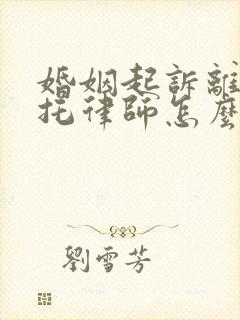 婚姻起訴離
托律師怎麼
劉雪芳